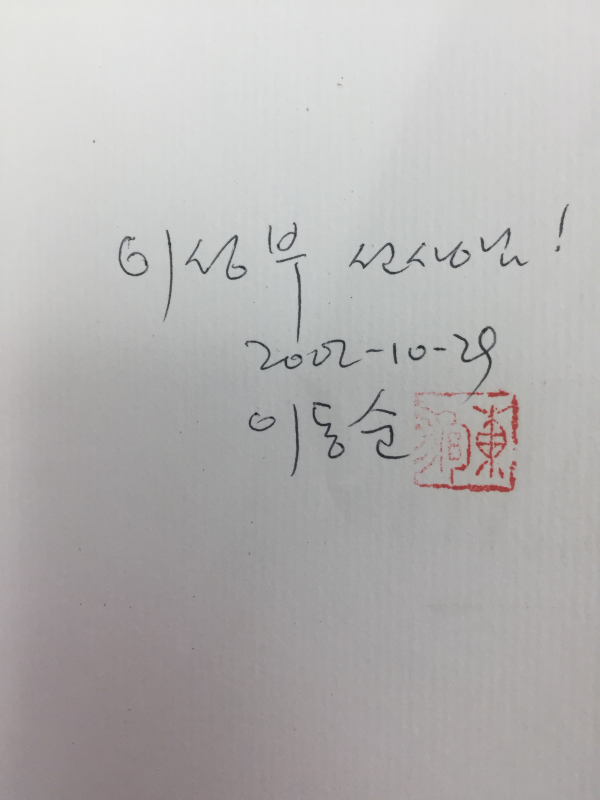 이성부 선생님!
2002-10-29
이동순
東洵